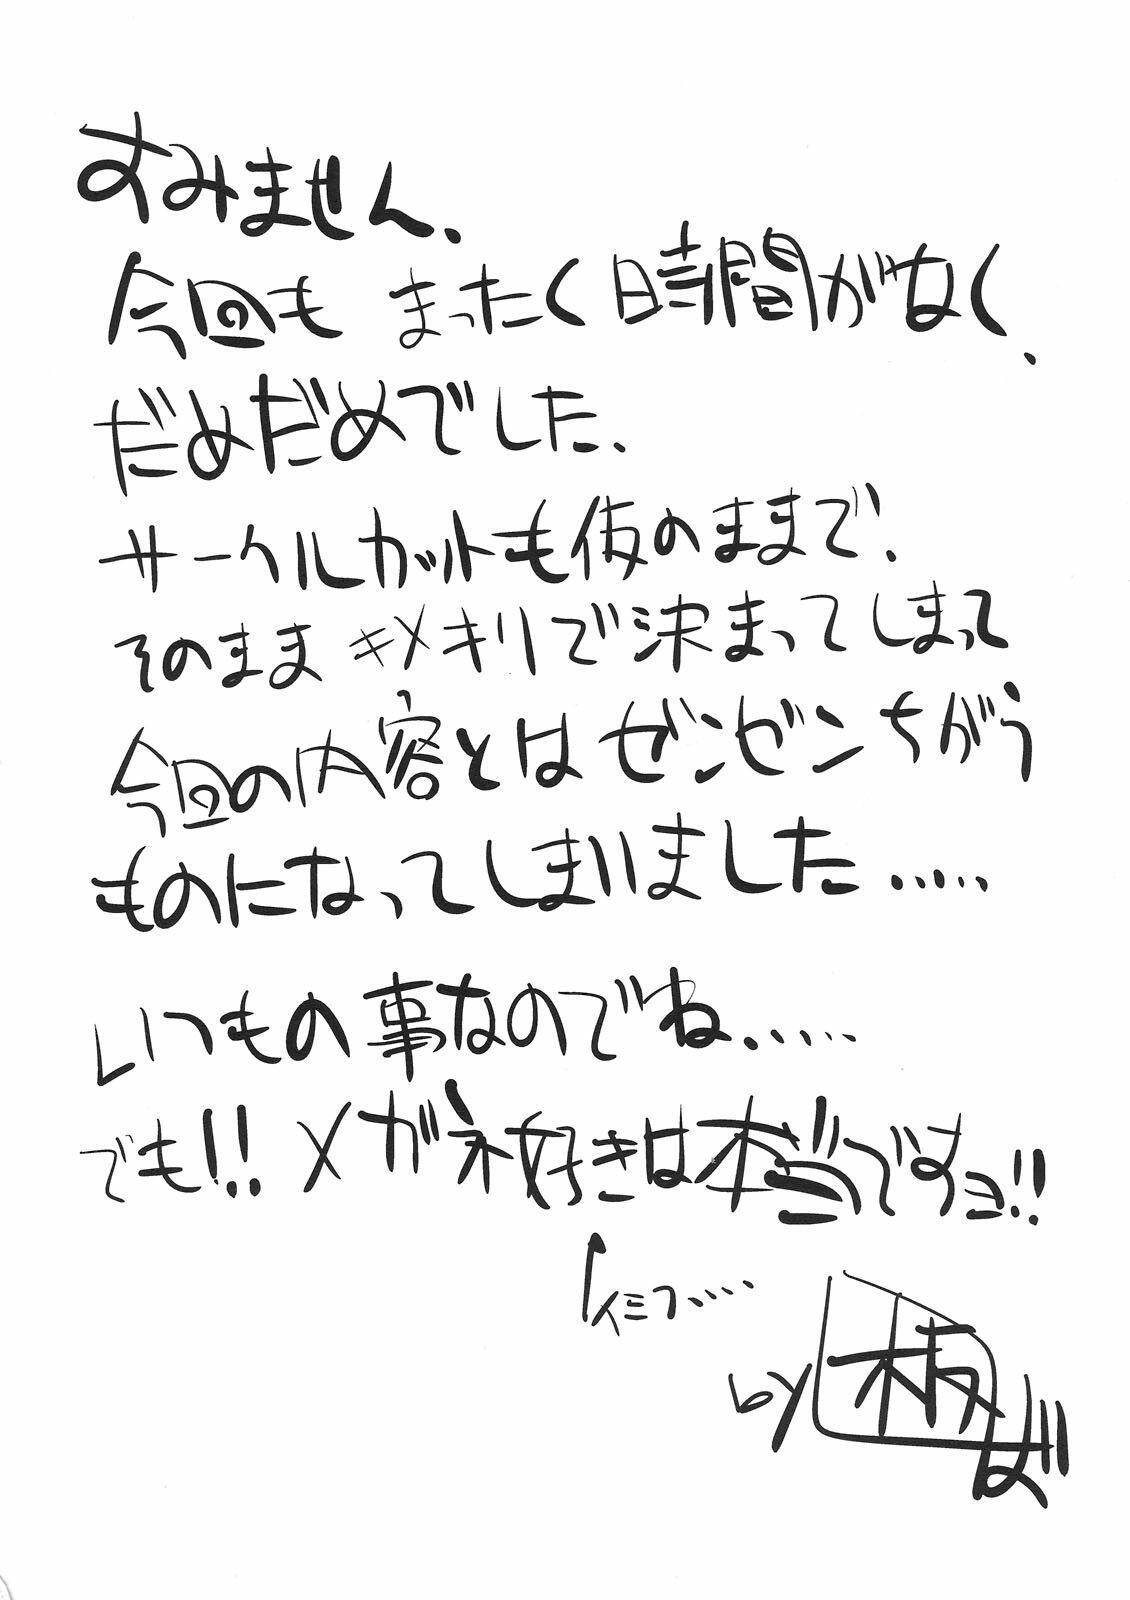 すみません、
今回も まったく時間がなく、
だめだめでした、
サークルカットも仮のままで、
そのままキメキリで決まってしまって
今回の内容とはゼンゼンちがう
ものになってしまいました.....
いつもの事なのでね.....
でも!! メガネ好きは本当ですョ!!
イミフ....
by 板ば